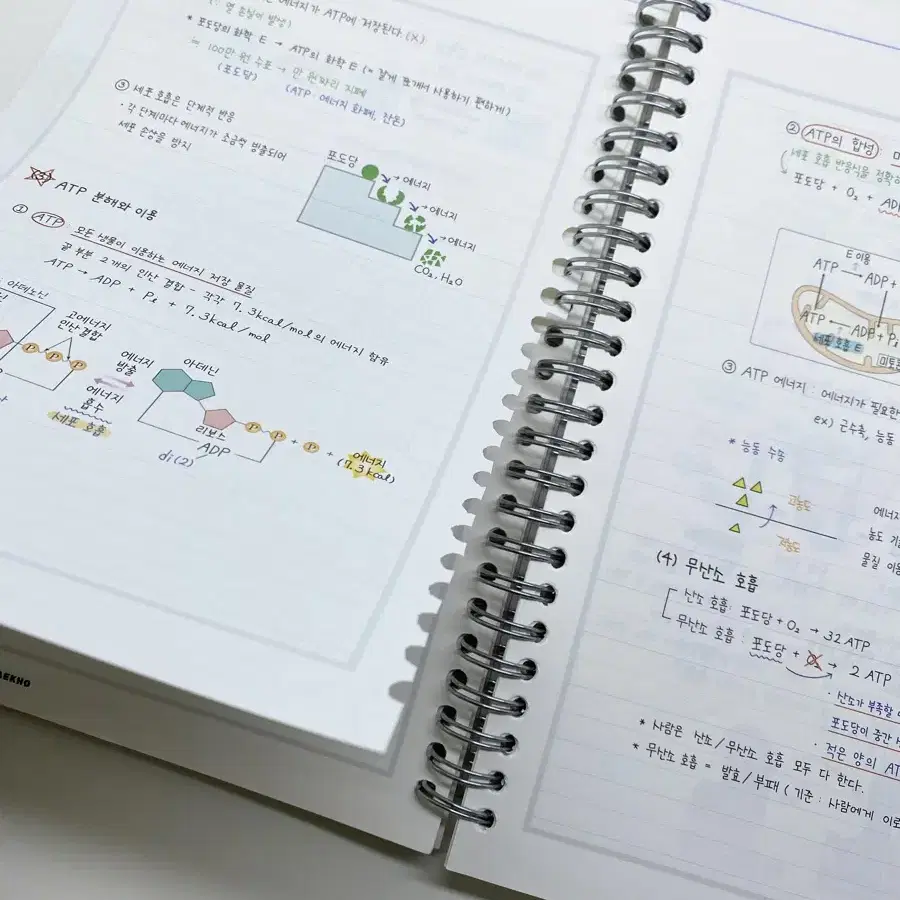 에너지가 ATP에 저장된다. (X)
(∵ 열 손실이 발생)
* 포도당의 화학 E → ATP의 화학 E (= 잘게 쪼개서 사용하기 편하게)
= 100만 원 수표 → 만 원짜리 지폐
(포도당)
(ATP · 에너지 화폐, 잔돈)
③ 세포 호흡은 단계적 반응
· 각 단계마다 에너지가 조금씩 방출되어
세포 손상을 방지
포도당
→ 에너지
→ 에너지
→ 에너지
CO₂, H₂O
(3) ATP 분해와 이용
① ATP : 모든 생물이 이용하는 에너지 저장 물질
끝 부분 2개의 인산 결합 - 각각 7.3kcal/mol의 에너지 함유
ATP → ADP + Pi + 7.3kcal/mol
아데노신
고에너지
인산결합
P P P
에너지
방출
에너지
흡수
세포 호흡
아데닌
리보스
P P + P + 에너지
(7.3kcal)
ADP
di(2)
AEKHO
② ATP의 합성 :
세포 호흡 반응식을 정확히
포도당 + O₂ + AD
E 이용
ATP → ADP +
ATP ← ADP + Pi
세포 호흡 E
미토
③ ATP 에너지 : 에너지가 필요한
ex) 근수축, 능동
* 능동 수송
고농도
저농도
에너지
농도 기
물질 이동
(4) 무산소 호흡
산소 호흡 : 포도당 + O₂ → 32 ATP
무산소 호흡 : 포도당 + O₂ → 2 ATP
· 산소가 부족할
포도당이 중간
· 적은 양의 AT
* 사람은 산소/무산소 호흡 모두 다 한다.
* 무산소 호흡 = 발효/부패 ( 기준 : 사람에게 이로